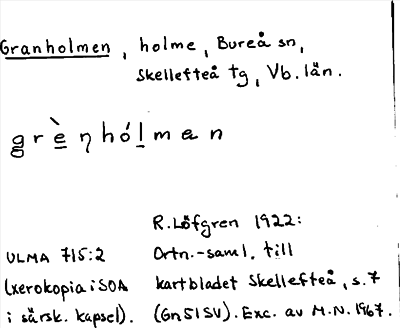 Granholmen, holme, Bureå sn,
Skellefteå tg, Vb. län.
grèŋhólman
R. Löfgren 1922:
ULMA 715:2 Ortn.-saml. till
(xerokopia i SOA kartbladet Skellefteå, s. 7
i särsk. kapsel). (Gn 51 SV). Exc. av M.N. 1967.